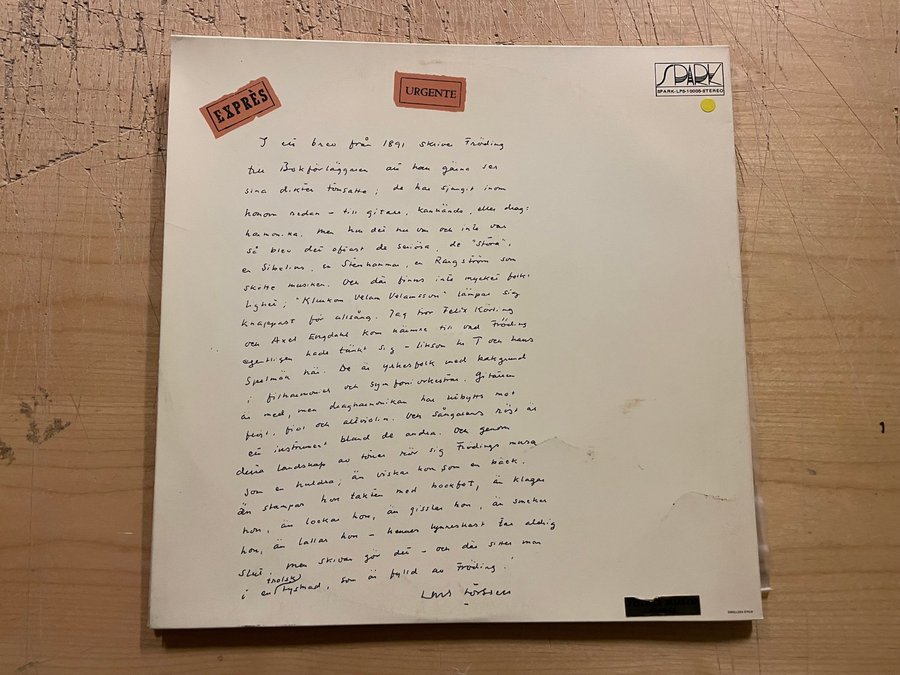 EXPRÈS
URGENTE
SPARK
SPARK-LPS-10005-STEREO
I ett brev från 1891 skrive Fröding
till Bokförläggaren att han gärna ser
sina dikter tonsatta; de har sjungit inom
honom redan – till gitarr, kanhända, eller drag-
harmonika. Men hur det nu var och inte var
så blev det oftast de seriösa, de "stora",
en Sibelius, en Stenhammar, en Rangström som
skötte musiken. Och där finns inte mycket folk-
lighet; "Klockom Velam Velamsson" lämpar sig
knappast för allsång. Jag tror Felix Körling
och Axel Engdahl kom närmre till vad Fröding
egentligen hade tänkt sig – liksom T och hans
Spelmän här. De är yrkesfolk med bakgrund
i filharmonier och symfoniorkestrar. Gitarren
är med, men dragharmonikan har utbytts mot
flöjt, fiol och altviolin. Och sångarens röst är
ett instrument bland de andra. Och genom
detta landskap av toner rör sig Frödings musa
som en huldra; än viskar hon som en bäck.
än stampar hon takten med bockfot, än klagar
hon, än lockar hon, än gisslar hon, än smeker
hon, än lallar hon – hennes lynneskast tar aldrig
slut. Men skivan gör det – och där sitter man
i en trolsk tystnad, som är fylld av Fröding!
Lars Forssell
1